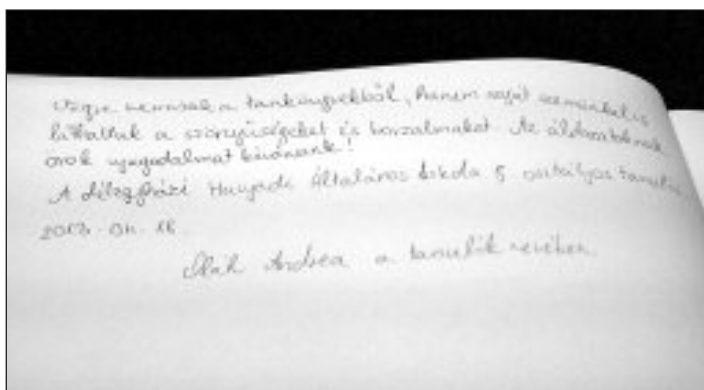 Végre nemcsak a tankönyvekből, hanem saját szemünkkel is
láthattuk a szörnyűségeket és borzalmakat. Az áldozatoknak
örök nyugodalmat kívánunk!
A Hunyadi Általános Iskola 8. osztályos tanulói
2013. 04. 18.
Andrea a tanulók nevében